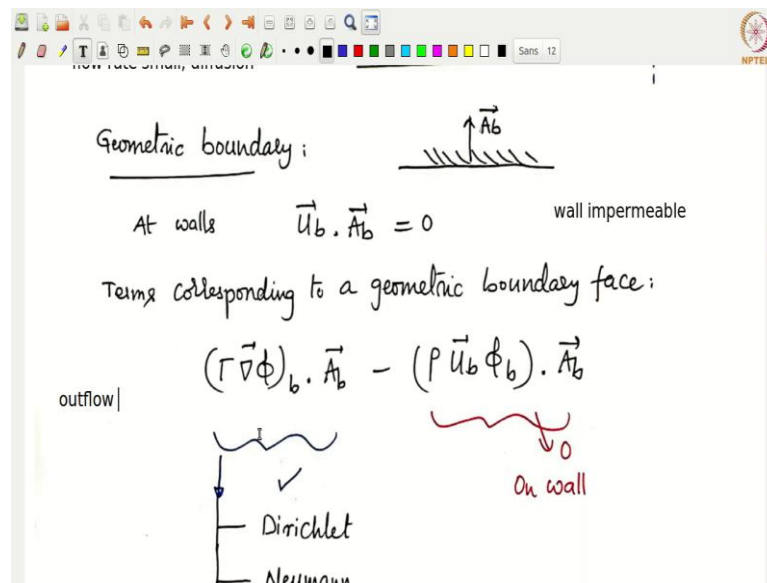 Sans 12
NPTEL
flow rate small, diffusion
Geometric boundary :
A⃗b
At walls u⃗b . A⃗b = 0
wall impermeable
Terms corresponding to a geometric boundary face :
(Γ∇⃗ϕ)b . A⃗b − (ρ u⃗b ϕb) . A⃗b
outflow
0
On wall
Dirichlet
Neumann